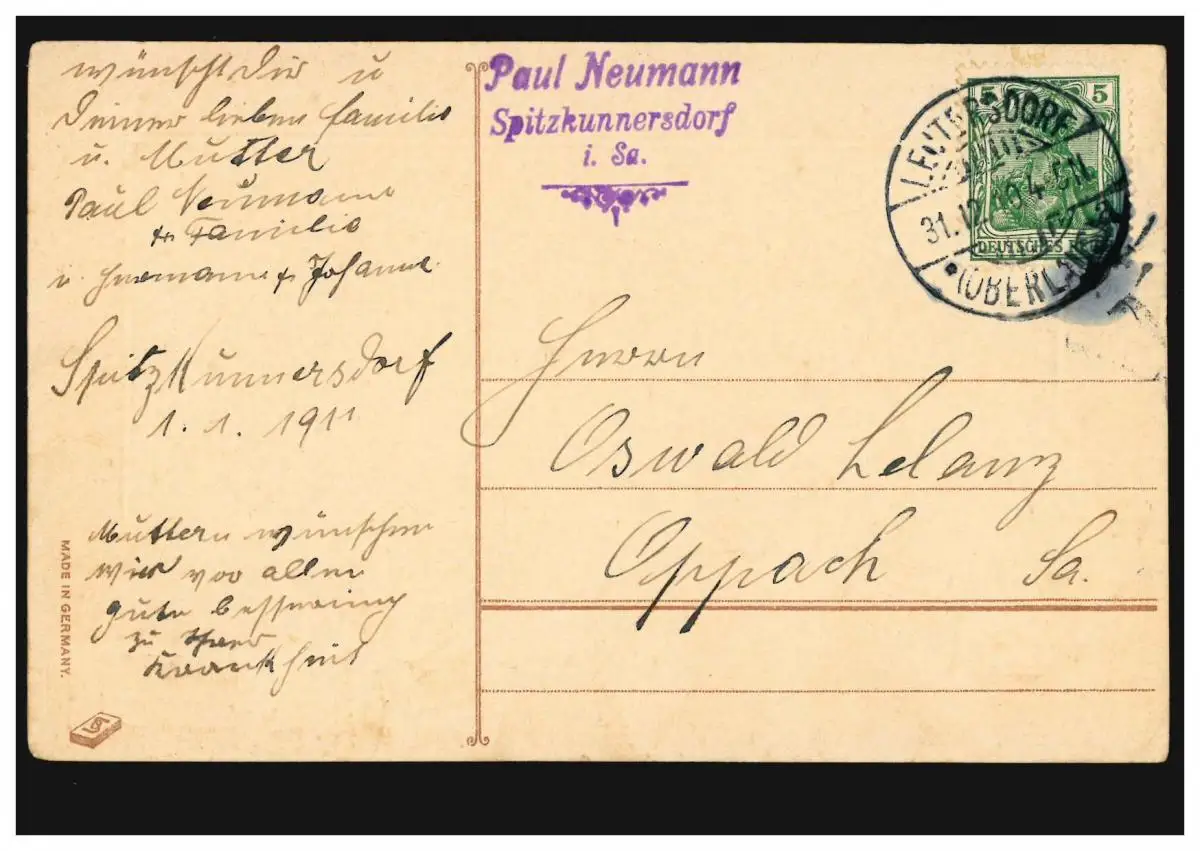 wünscht Dir u
Deiner lieben Familie
u. Mutter
Paul Neumann
Familie
u. Hermann Johanne.
Spitzkunnersdorf
1. 1. 1911
Muttern wünschen
wir vor allen
gute besserung
zu Ihrer
Krankheit
MADE IN GERMANY.
Paul Neumann
Spitzkunnersdorf
i. Sa.
5 5
DEUTSCHES REICH
LEUTERSDORF
31.12.10.4-5N.
*(OBERLAUSITZ)
Herrn
Oswald Lelanz
Oppach Sa.